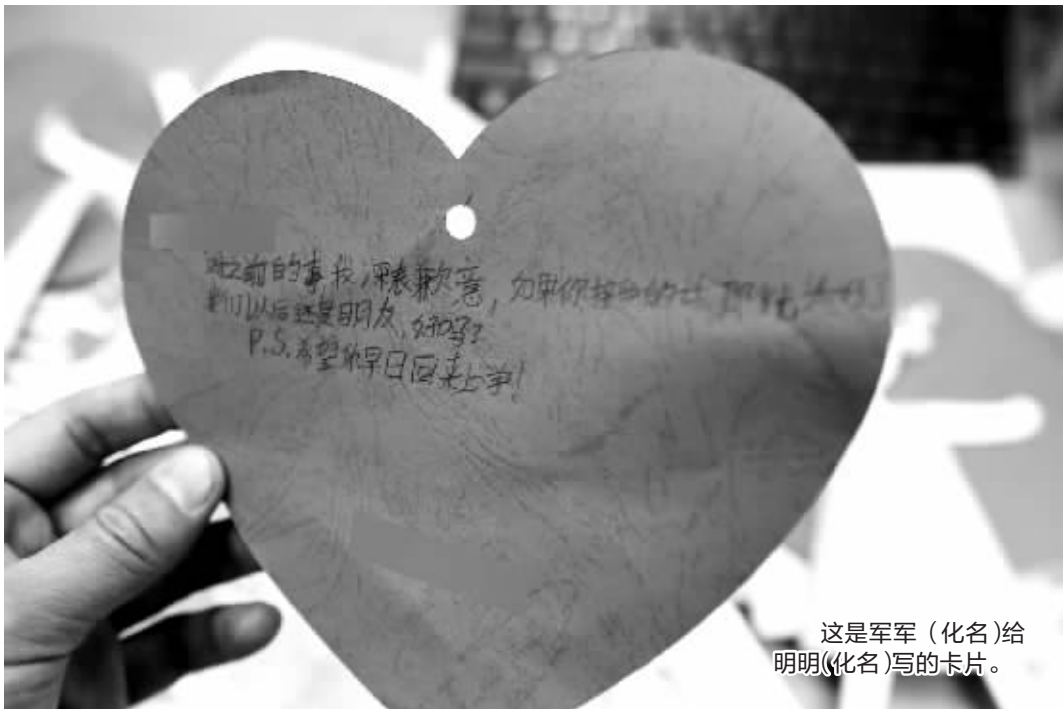 对之前的事,我深表歉意,如果你
我们以后还是朋友,好吗?
P.S.希望你早日回来上学!
这是军军（化名)给
明明(化名)写的卡片。